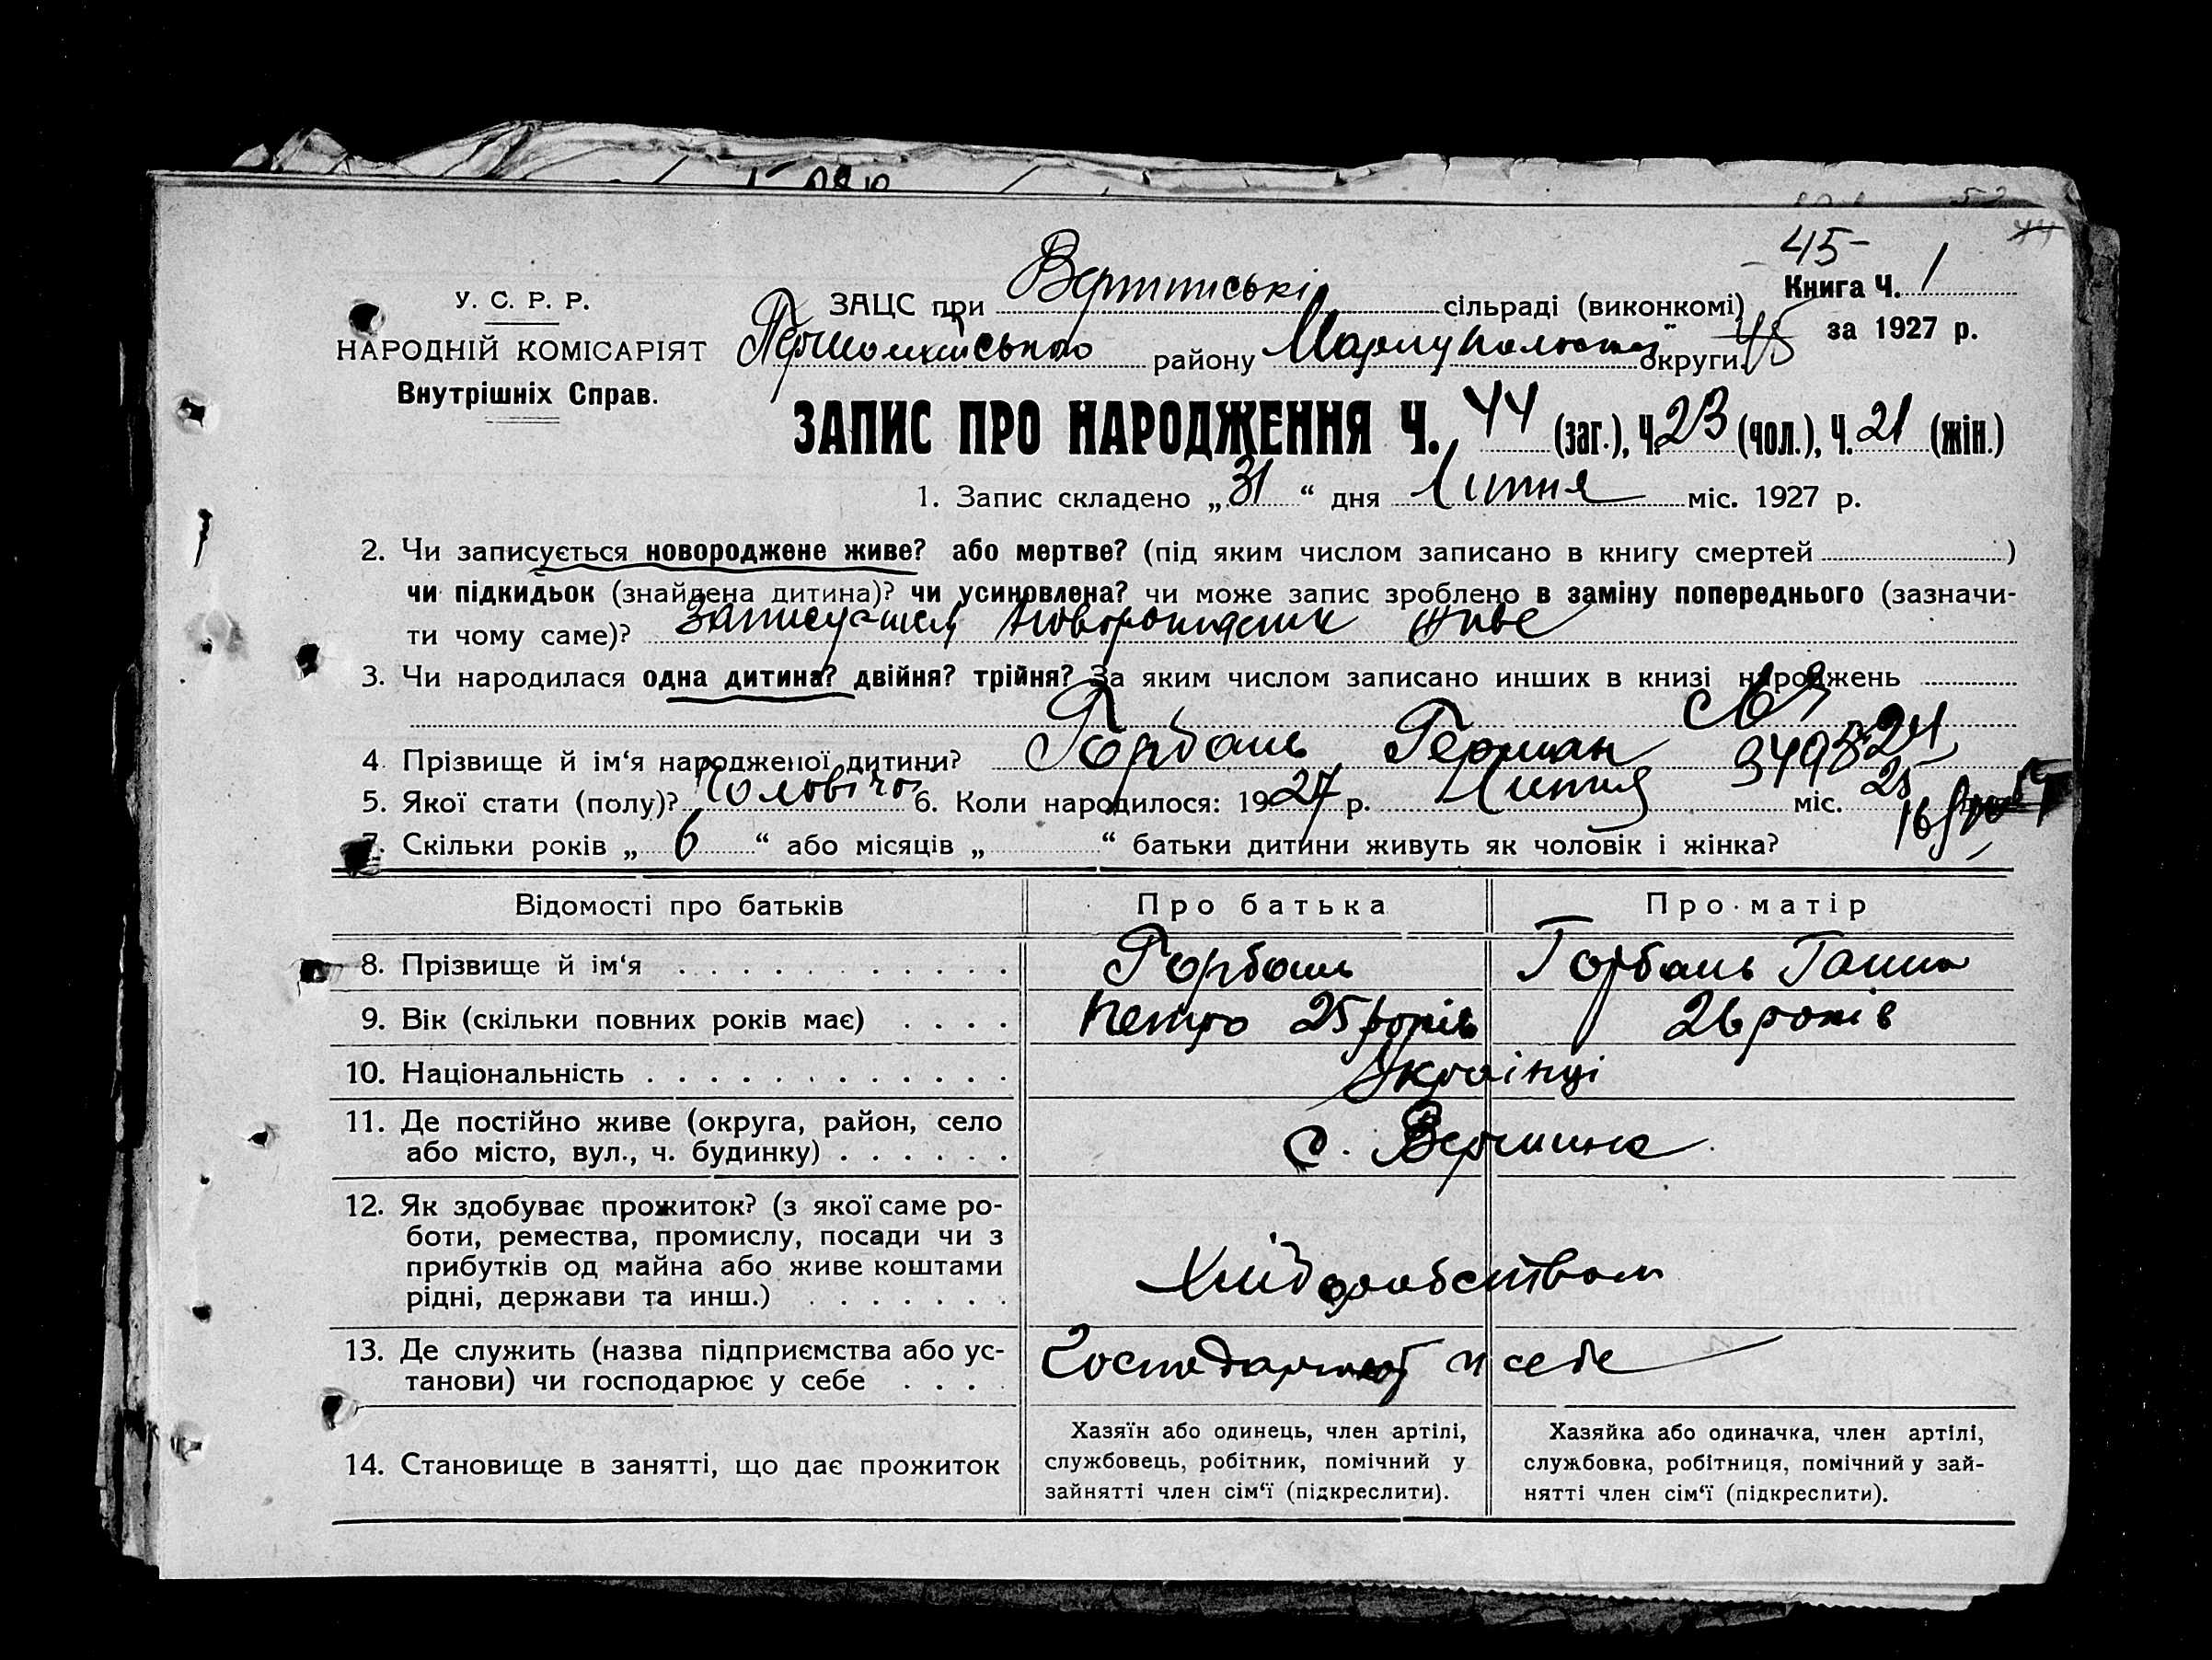 45-
У. С. Р. Р.
НАРОДНІЙ КОМІСАРІЯТ
Внутрішніх Справ.
ЗАЦС при сільраді (виконкомі)
Книга Ч. 1
за 1927 р.
району Маріупольської округи 45
ЗАПИС ПРО НАРОДЖЕННЯ Ч. 44 (заг.), Ч. 23 (чол.), Ч. 21 (жін.)
1. Запис складено „ 31 “ дня Липня міс. 1927 р.
2. Чи записується новороджене живе? або мертве? (під яким числом записано в книгу смертей )
чи підкидьок (знайдена дитина)? чи усиновлена? чи може запис зроблено в заміну попереднього (зазначи-
ти чому саме)? живе
3. Чи народилася одна дитина? двійня? трійня? За яким числом записано инших в книзі народжень
4. Прізвище й ім‘я народженої дитини? Горбань Герман
5. Якої стати (полу)? Чоловічої 6. Коли народилося: 1927 р. Липня міс. 25
7. Скільки років „ 6 “ або місяців „ “ батьки дитини живуть як чоловік і жінка?
Відомості про батьків Про батька Про матір
8. Прізвище й ім‘я Горбань Горбань Ганна
9. Вік (скільки повних років має) Петро 25 років 26 років
10. Національність Українці
11. Де постійно живе (округа, район, село
або місто, вул., ч. будинку)
12. Як здобуває прожиток? (з якої саме ро-
боти, ремества, промислу, посади чи з
прибутків од майна або живе коштами
рідні, держави та инш.) Хліборобством
13. Де служить (назва підприємства або ус-
танови) чи господарює у себе себе
14. Становище в занятті, що дає прожиток
Хазяїн або одинець, член артілі,
службовець, робітник, помічний у
зайнятті член сім‘ї (підкреслити).
Хазяйка або одиначка, член артілі,
службовка, робітниця, помічний у зай-
нятті член сім‘ї (підкреслити).